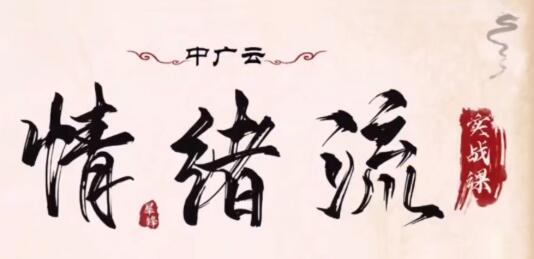 中广云
情绪流
实战课